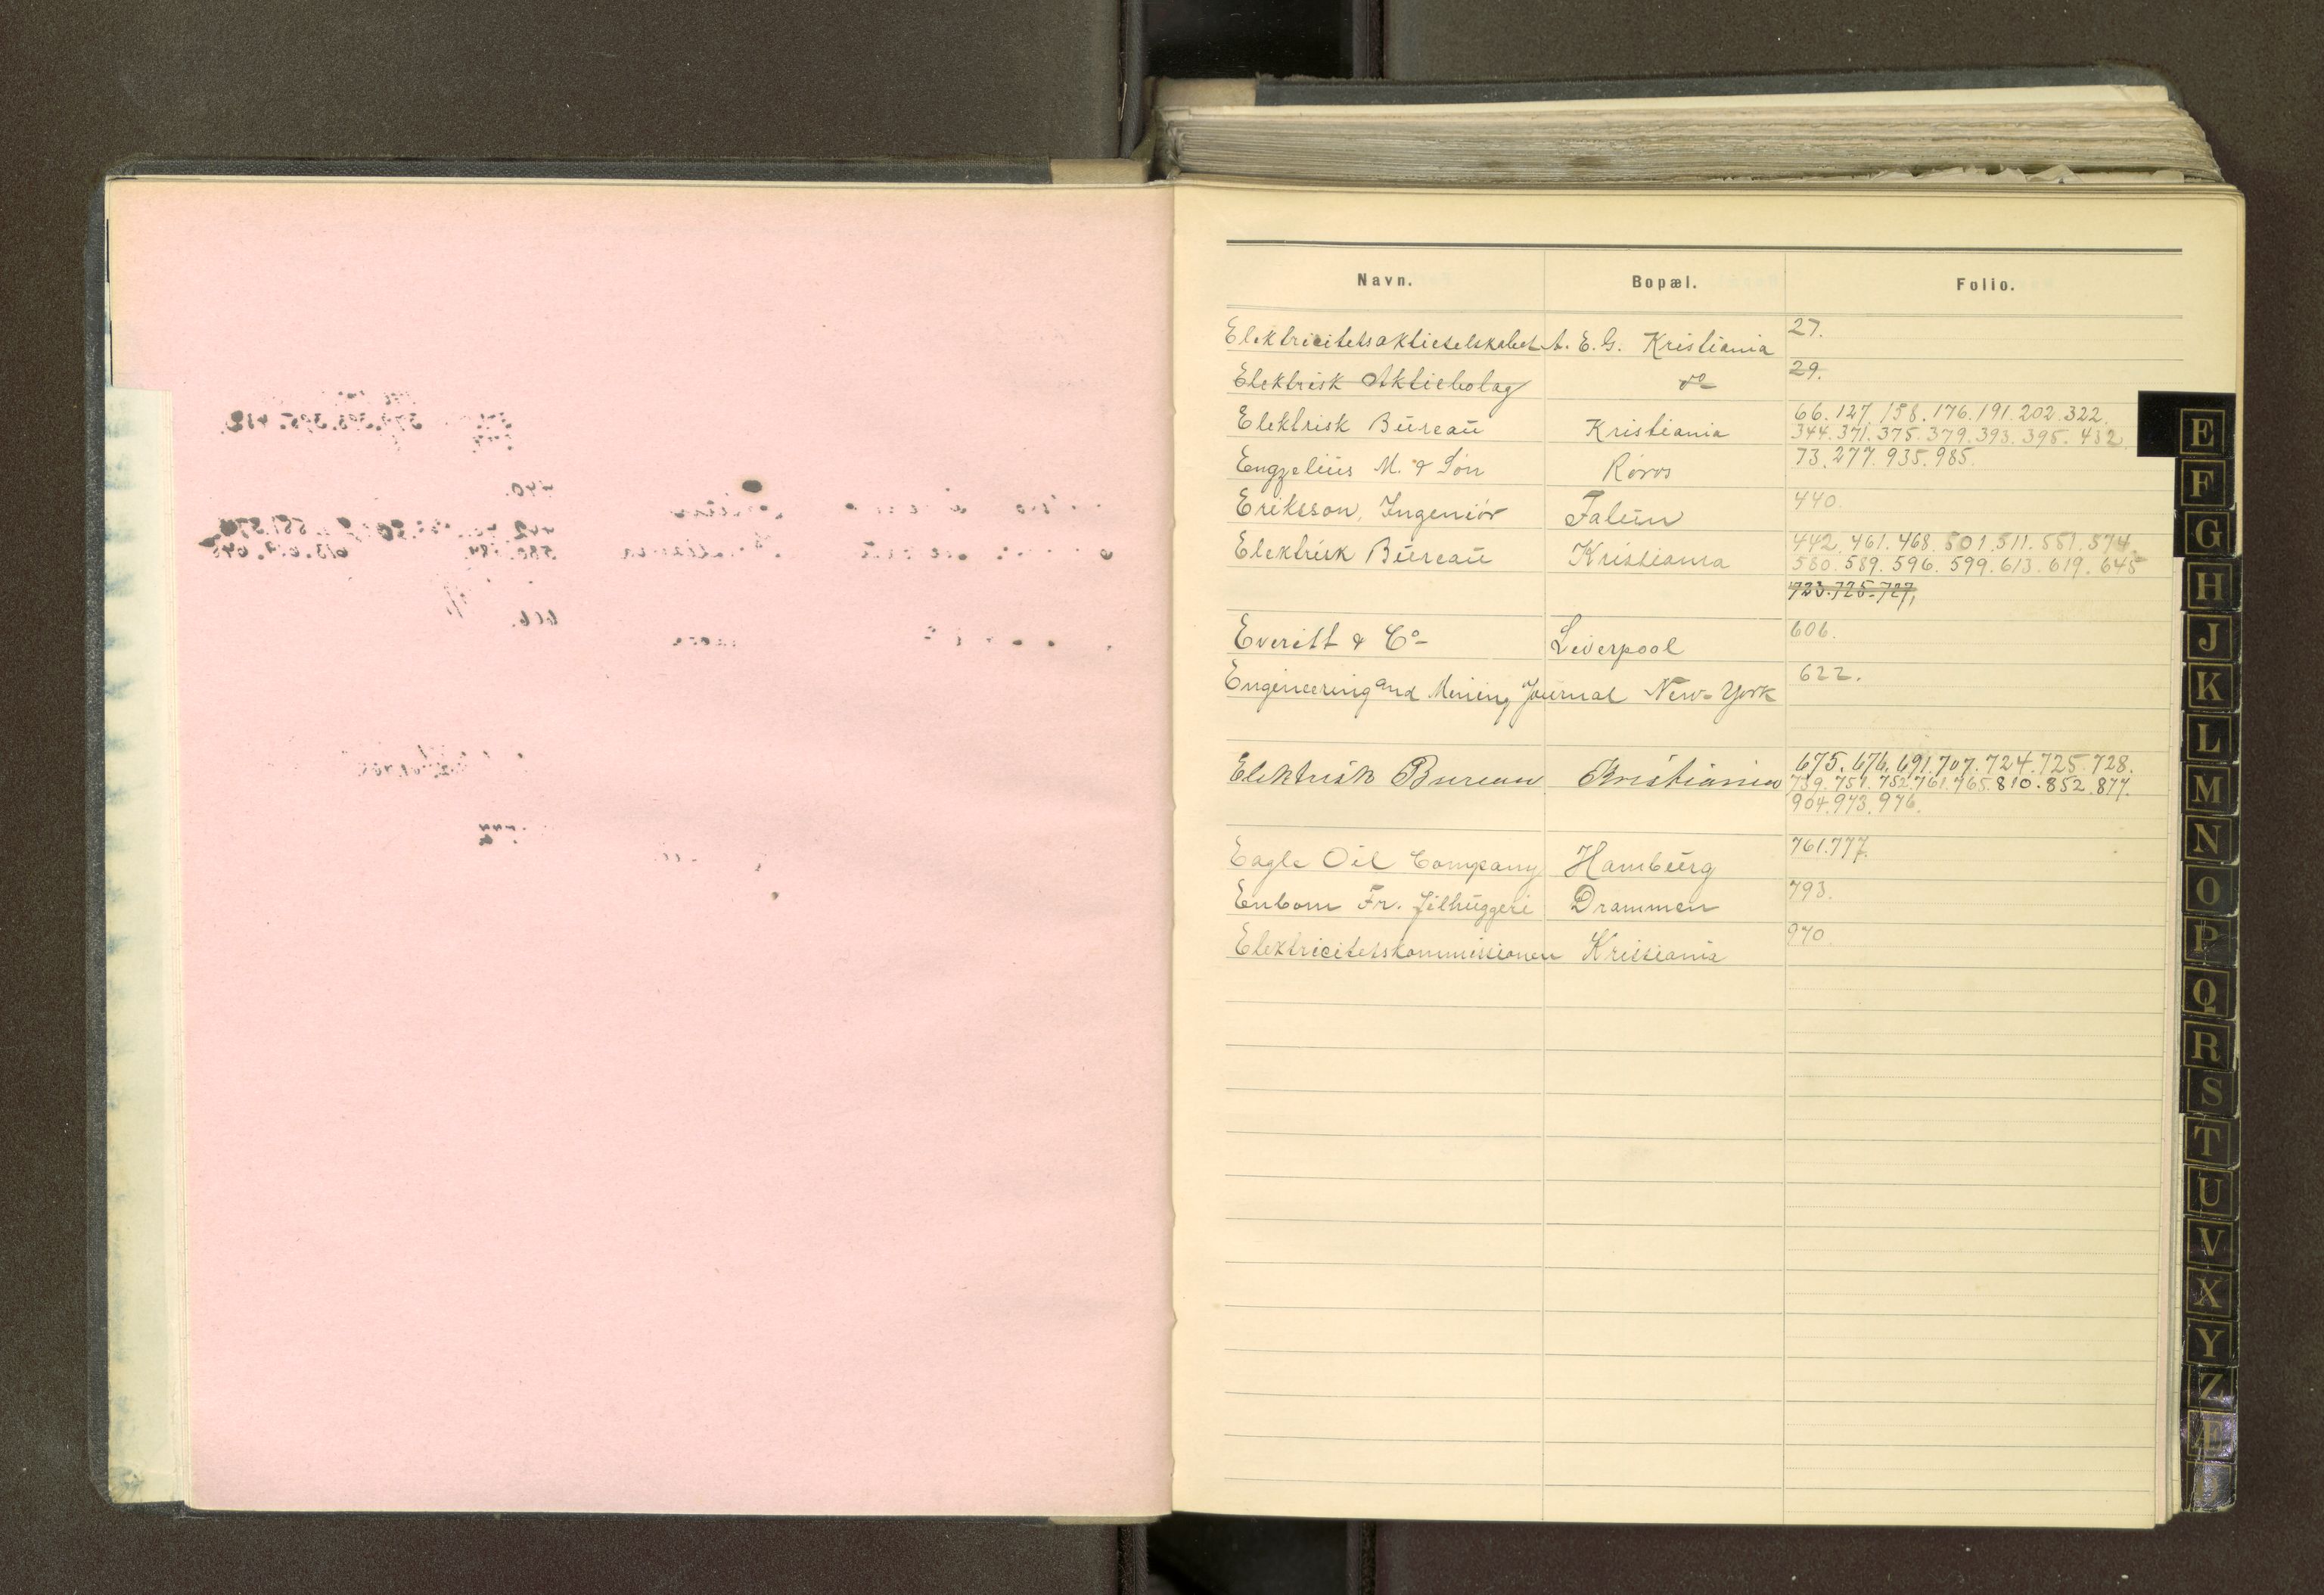 Navn. Bopæl. Folio.
Elektricitetsaktieselskabet A. E. G. Kristiania 27.
Elektrisk Aktiebolag do 29.
Elektrisk Büreaü Kristiania 66. 127. 158. 176. 191. 202. 322.
344. 371. 375. 379. 393. 395. 432.
Engzeliüs M. & Søn Røros 73. 277. 935. 985.
Eriksson, Ingeniør Falün 440.
Elektrisk Büreaü Kristiania 442. 461. 468. 501. 511. 551. 574.
580. 589. 596. 599. 613. 619. 645
723. 725. 727,
Everitt & Co Liverpool 606.
Engineering and Mining Journal New-York 622.
Elektrisk Bureau Kristiania 675. 676. 691. 707. 724. 725. 728.
739. 751. 752. 761. 765. 810. 852. 877.
904. 973. 976.
Eagle Oil Company Hambürg 761. 777.
Enbom Fr. Filhüggeri Drammen 793.
Elektricitetskommissionen Kristiania 970.
E
F
G
H
J
K
L
M
N
O
P
Q
R
S
T
U
V
X
Y
Z
Æ